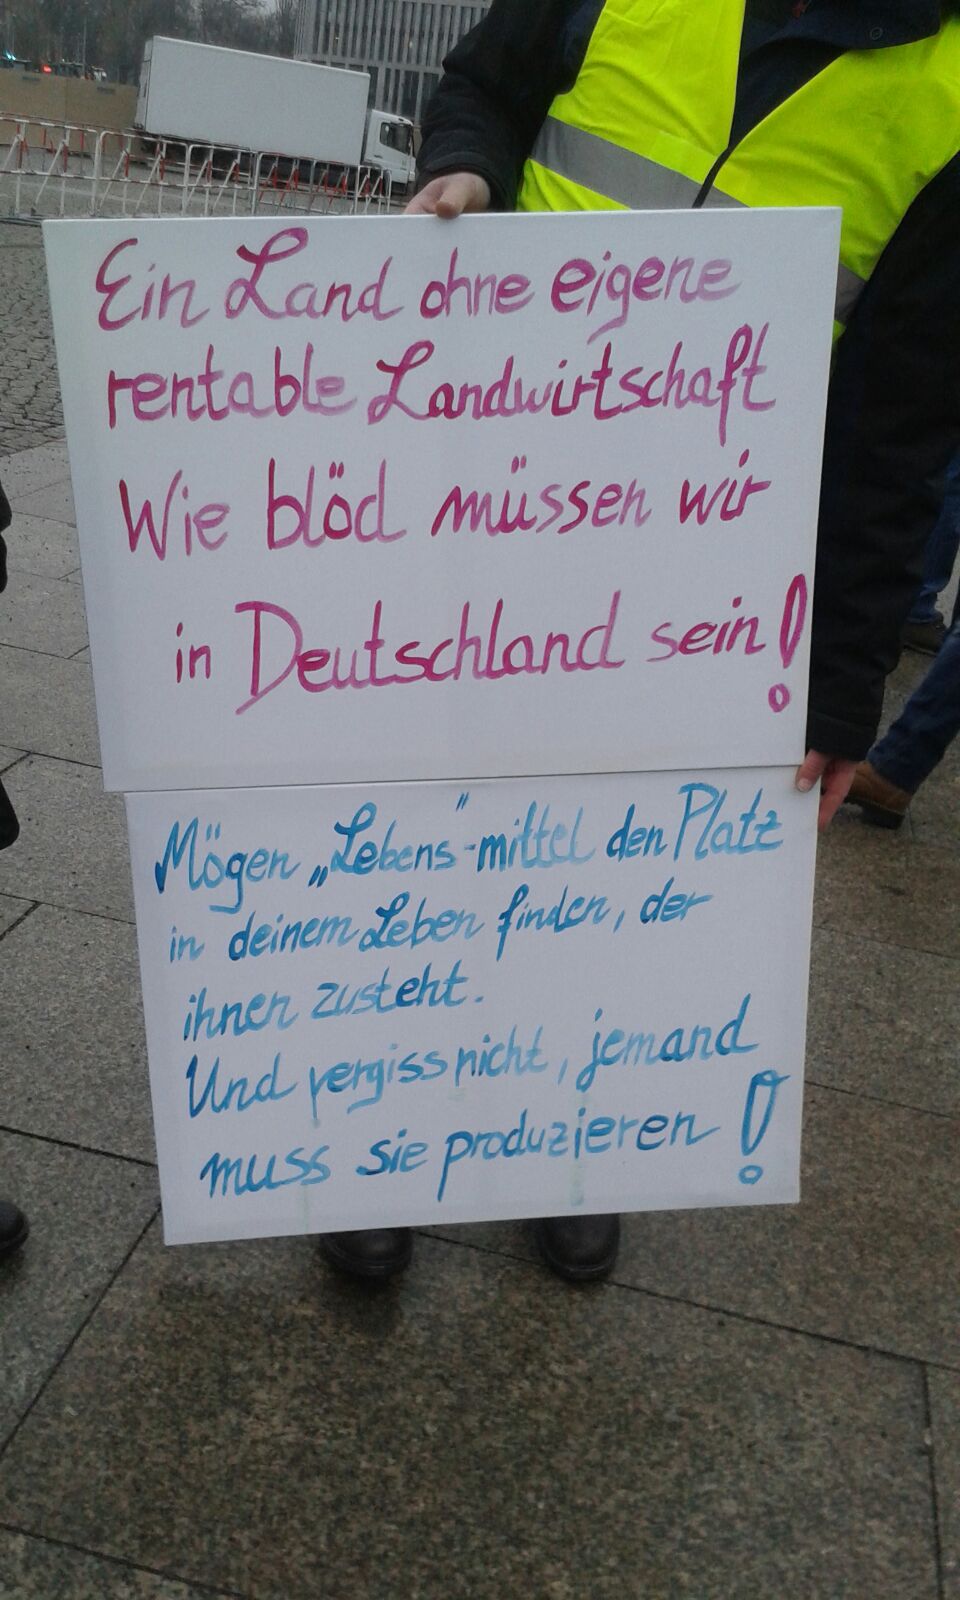 Ein Land ohne eigene
rentable Landwirtschaft
Wie blöd müssen wir
in Deutschland sein!
Mögen „Lebens"-mittel den Platz
in deinem Leben finden, der
ihnen zusteht.
Und vergiss nicht, jemand
muss sie produzieren!